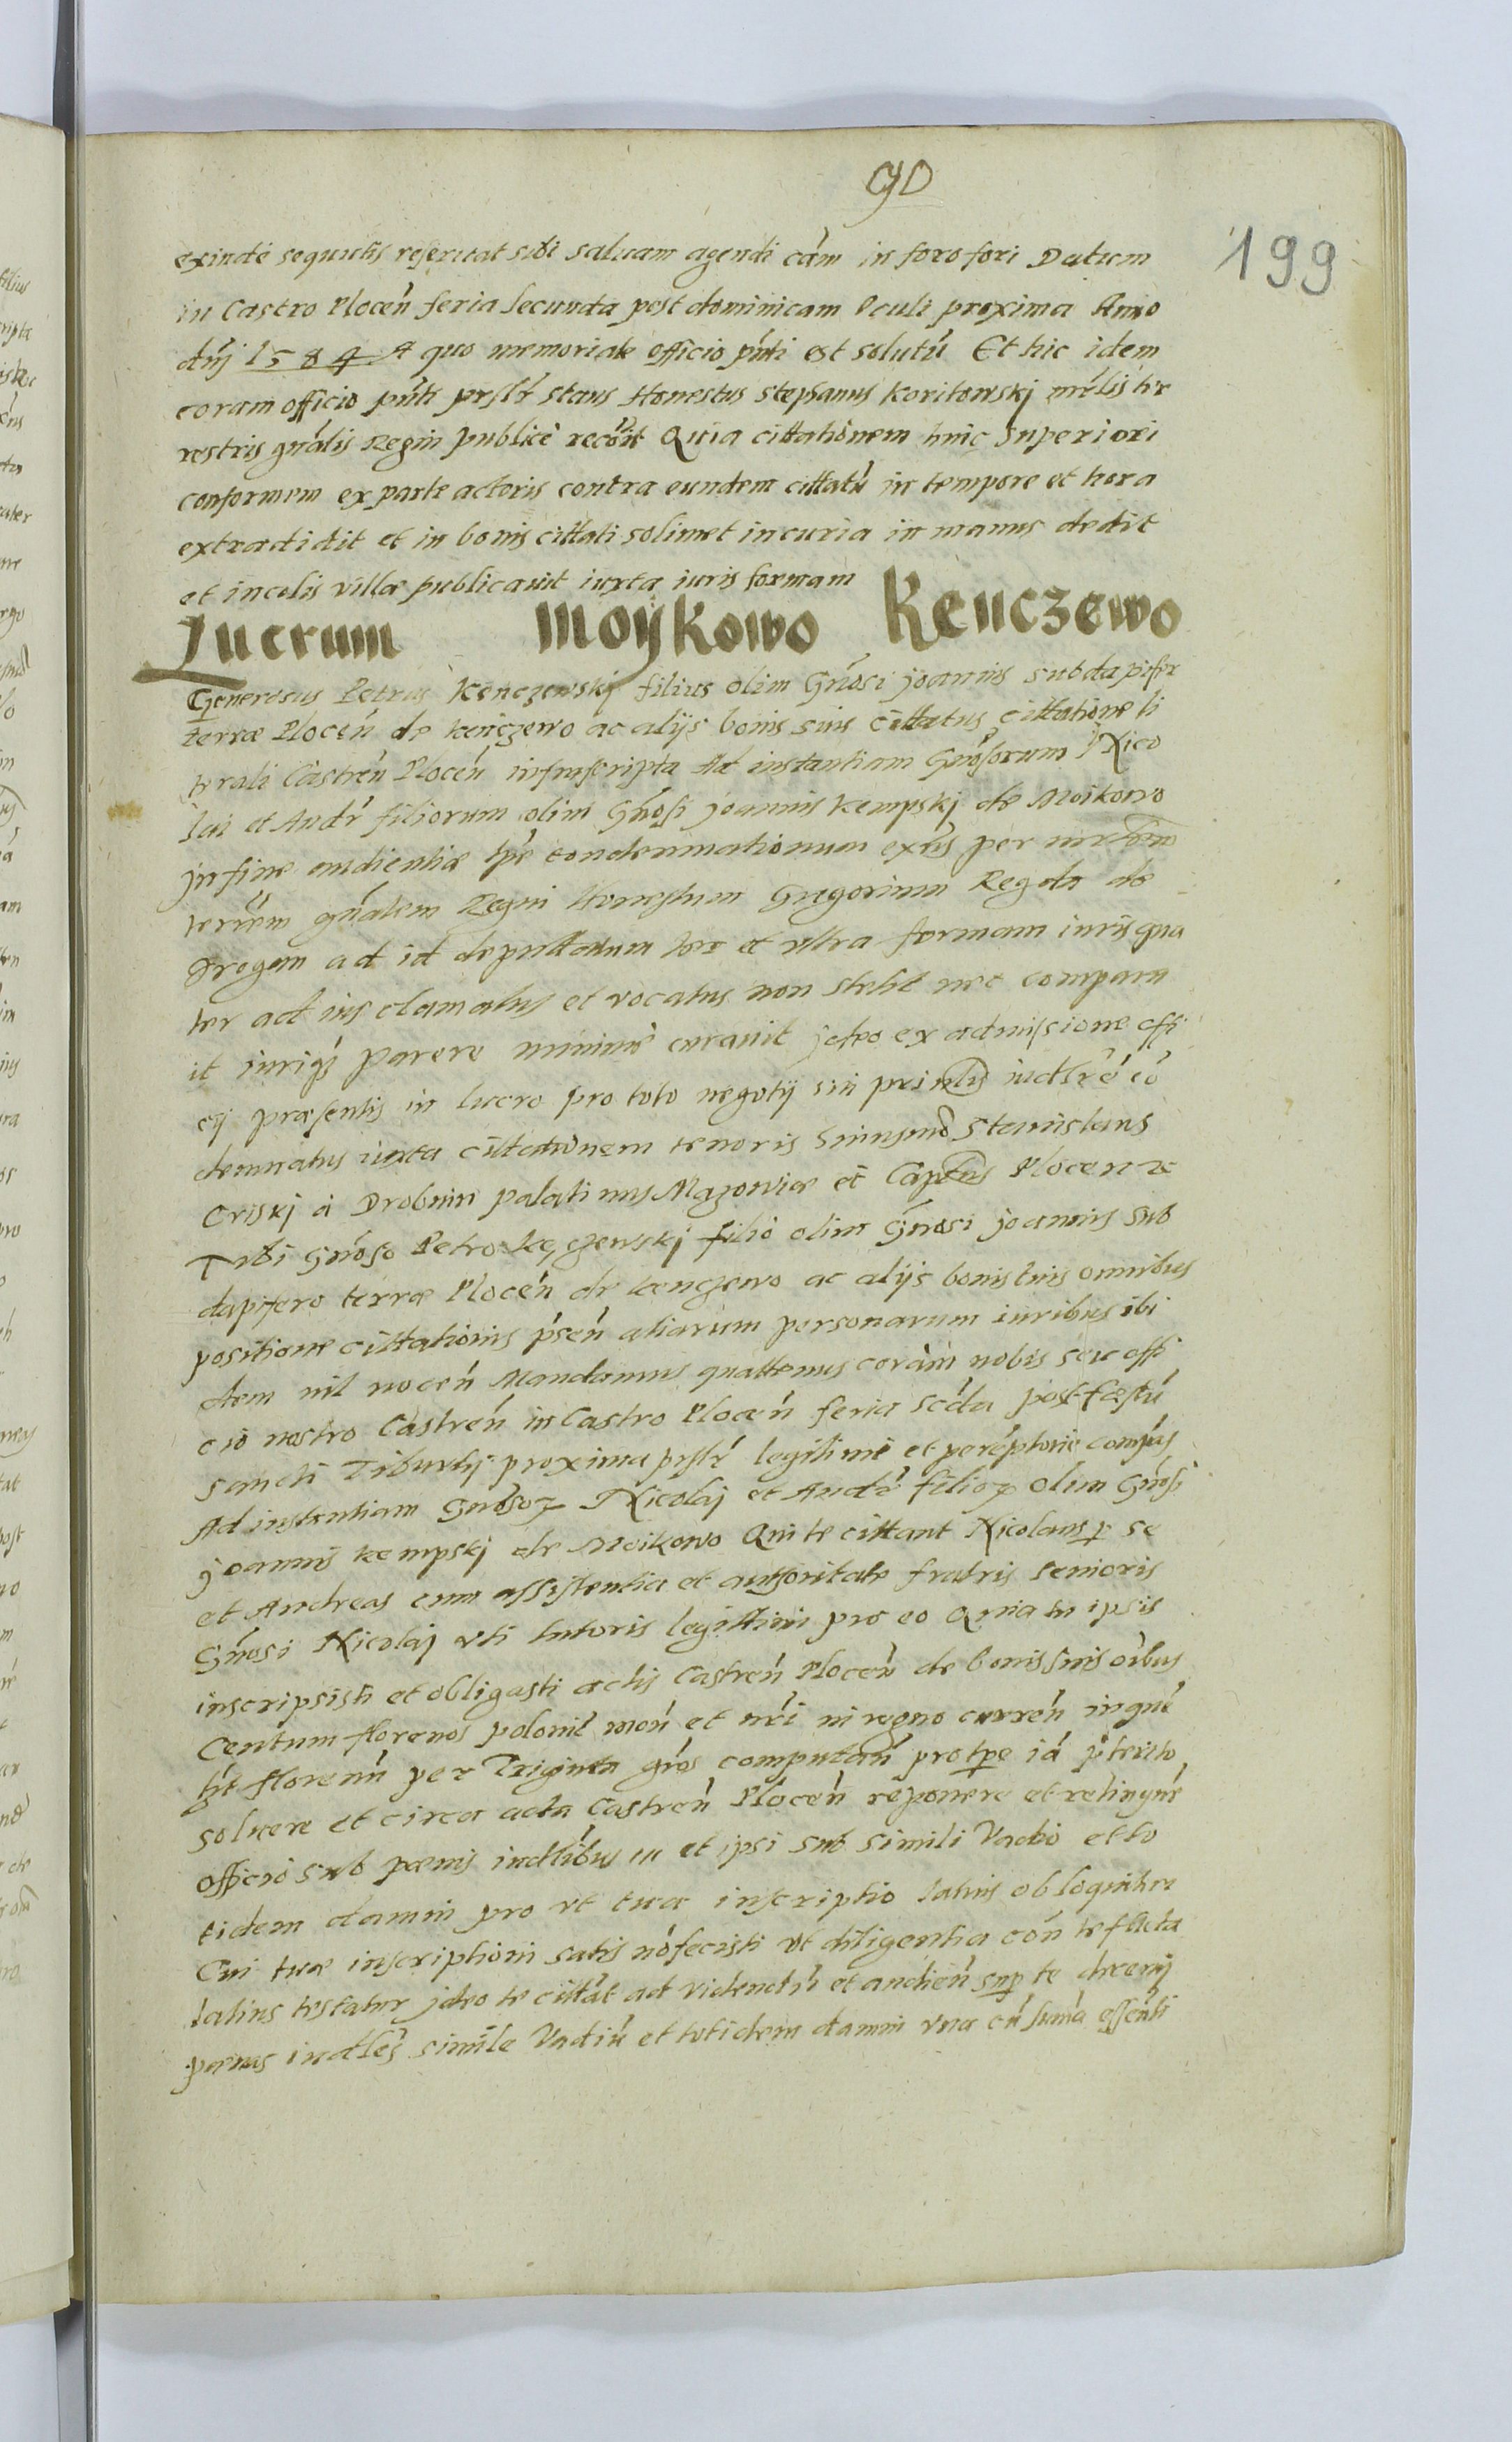 90
199
exinde sequutis reseruat sibi saluam agendi cám in foro fori Datum
in Castro Plocen̄ feria secunda post dominicam Oculi proxima Anno
dn̄j 1584 A quo memoriale officio pn̄ti est solutū Et hic idem
coram officio pn̄ti prslr̄ stans Honestus Stephanus Koritowskj mr̄lis ter
restris gn̄alis Regni publicè recōit Quia cittationem huic Superiori
conformem ex parte actoris contra eundem cittatū in tempore et hora
extradidit et in bonis cittati solimet in curia in manus dedit
et incolis villæ publicauit iuxta iuris formam
Lucrum Moykowo Kenczewo
Generosus Petrus Kenczewskj filius olim Gn̄osi Joannis subdapifer
terræ Plocen̄ de Kenczewo ac alijs bonis suis cittatus cittatione li
terali Castren̄ Plocen̄ infrascripta Ad instantiam Gn̄osorum Nico
lai et Andr̄ filiorum olim Gn̄osi Joannis Kempskj de Moikowo
in fine audientiæ tp̄e condemnationum ex̄ns per mr̄lem
terrēm gn̄alem Regni Honestum Gregorium Regola de
Drogan ad id deputtatum ter et vltra formam iuris qua
ter ad ius clamatus et vocatus non stetit nec comparu
it iuriq̨ parere minimè curauit Ideo ex admissione offi
cij præsentis in lucro pro toto negotij sui prin̄lis iudl̄rē cō
demnatus iuxta cittationem tenoris huiusmo̅ Stanislaus
Criskj à Drobnin palatinus Mazoviæ et Captn̄us Plocen &
Tibi Gn̄oso Petro Kęczewskj filio olim Gn̄osi Joannis sub
dapifero terræ Plocen̄ de Kenczewo ac alijs bonis tuis omnibus
positione cittationis p̄sen̄ aliarum personarum iuribus ibi
dem nil nocen̄ Mandamus quattenus coràm nobis seu offi
cio nostro Castren̄ in Castro Plocen̄ feria scd̄a post fæstū
Sancti Tiburtij proxima prslr̄ legitimè et perēptoriè compās
Ad instantiam Gn̄osoꝝ Nicolaj et Andr̄ filioꝝ olim Gn̄osi
Joannis Kempskj de Moikowo Qui te cittant Nicolaus ꝑ se
et Andreas cum assistentia et authoritate fratris senioris
Gn̄osi Nicolaj vti tutoris legittimi pro eo Quia tu ipsis
inscripsisti et obligasti actis Castren̄ Plocen̄ de bonis suis oībus
Centum florenos polonil̄ mon̄ et nr̄i in regno curren̄ in qūe
ht̄ florenū per Triginta gr̄os computan̄ pro tꝑe iā p̄terito
soluere et circa acta Castren̄ Plocen̄ reponere et relinque
officio sub pœnis iudl̄ibus III et ipsi sub simili Vadio et to
tidem damni pro vt tua inscriptio latius obloquitur
Cui tuæ inscriptioni satis nō fecisti vt diligentia con̄ te facta
latius testatur Ideo te cittāt ad videndū et audien̄ suꝑ te decerni
pœnas iudl̄es simile Vadiū et totidem damni vna cū sum̄a essen̄li